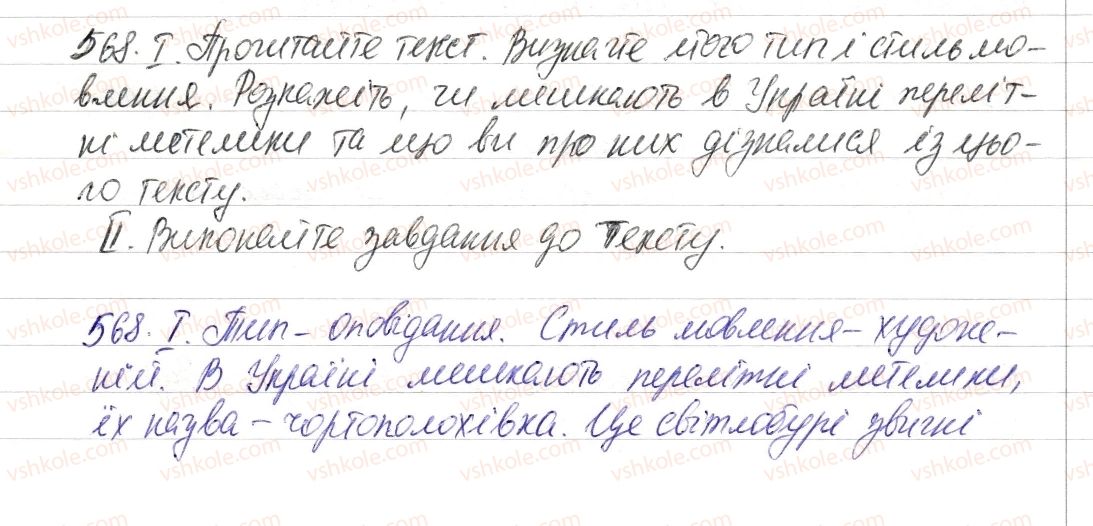 568. I. Прочитайте текст. Визначте його тип і стиль мо-
влення. Розкажіть, чи мешкають в Україні переліт-
ні метелики та що ви про них дізналися із цьо-
го тексту.
II. Виконайте завдання до тексту.
568. I. Тип – оповідання. Стиль мовлення – художе-
ній. В Україні мешкають перелітні метелики,
їх назва – чортополохівка. Це світлобурі звичні